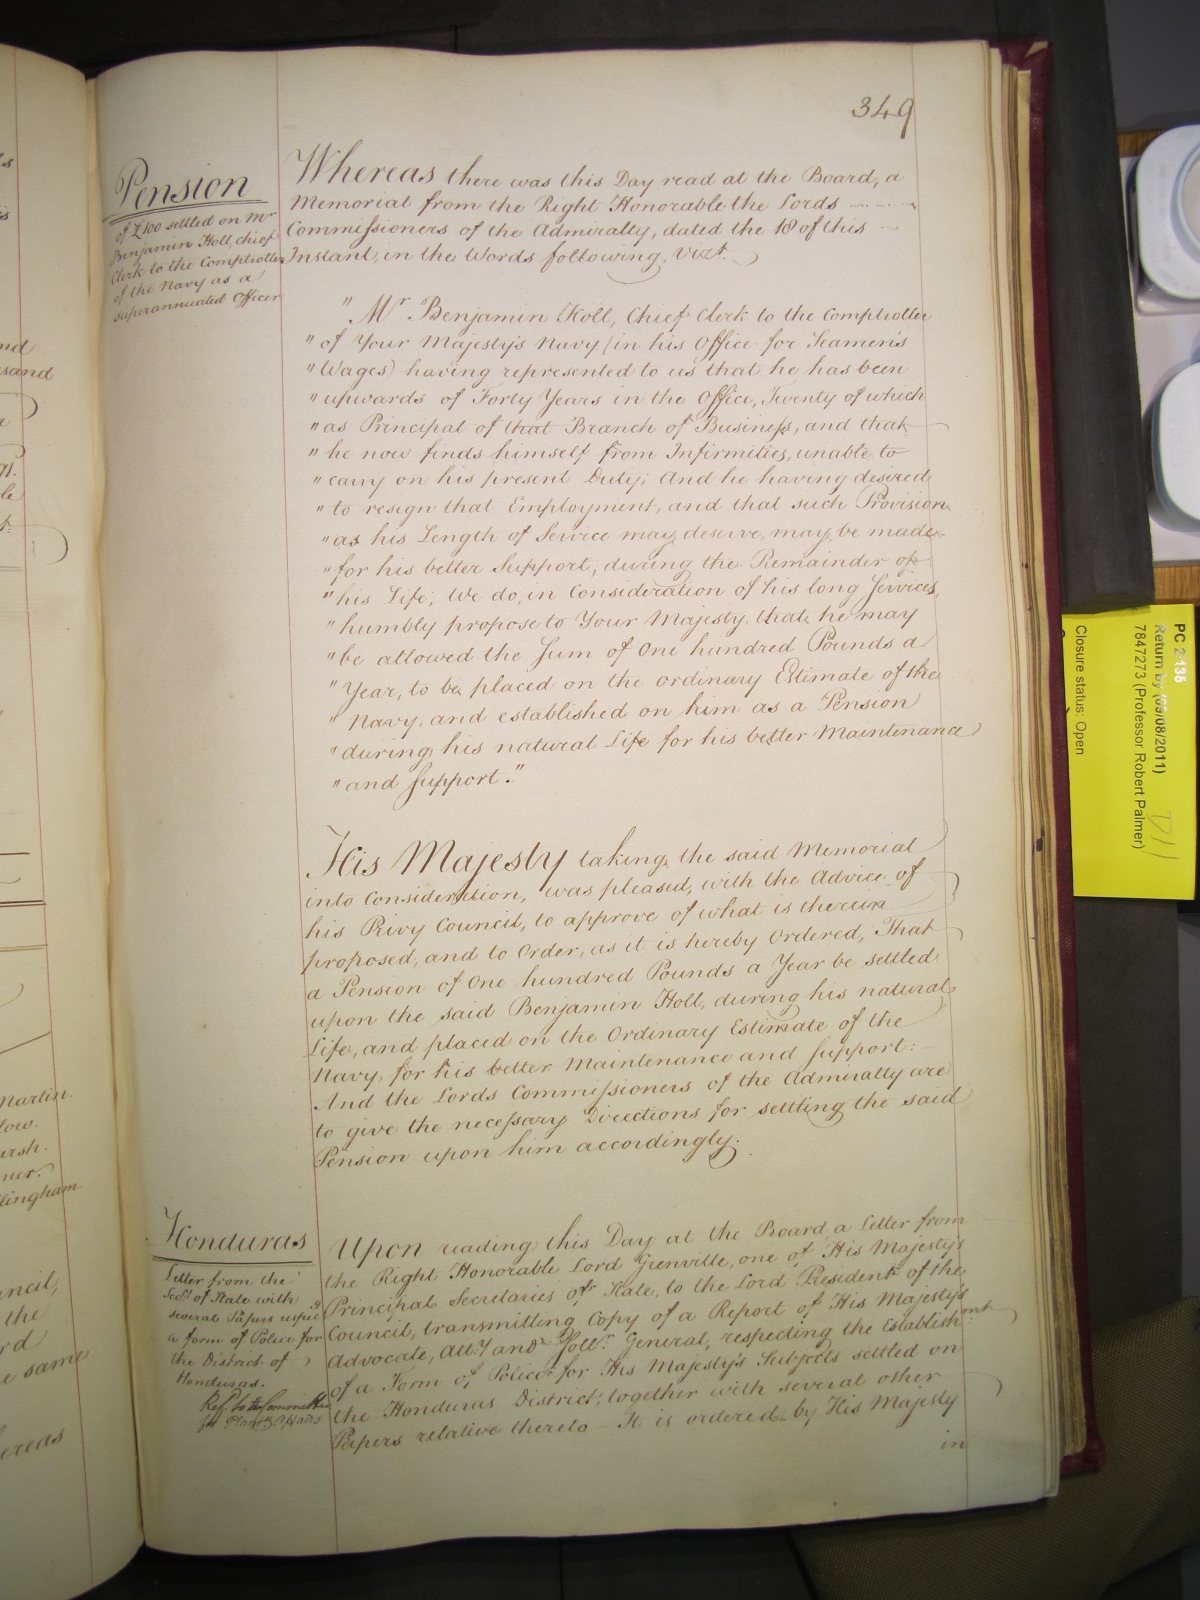 349
Pension
of £100 settled on Mr
Benjamin Holl, chief
Clerk to the Comptroller
of the Navy as a
superannuated Officer
Whereas there was this Day read at the Board, a
Memorial from the Right Honorable the Lords
Commissioners of the Admiralty, dated the 18 of this
Instant, in the Words following, Vizt.
" Mr Benjamin Holl, Chief Clerk to the Comptroller
" of Your Majesty's Navy (in his Office for Seamen's
" Wages) having represented to us that he has been
" upwards of Forty Years in the Office, Twenty of which
" as Principal of that Branch of Business, and that
" he now finds himself from Infirmities, unable to
" carry on his present Duty; And he having desired
" to resign that Employment, and that such Provision
" as his Length of Service may deserve, may be made
" for his better Support, during the Remainder of
" his Life; We do, in Consideration of his long Services,
" humbly propose to Your Majesty, that he may
" be allowed the Sum of One hundred Pounds a
" Year, to be placed on the ordinary Estimate of the
" Navy, and established on him as a Pension
" during his natural Life for his better Maintenance
" and Support."
His Majesty taking the said Memorial
into Consideration, was pleased, with the Advice of
his Privy Council, to approve of what is therein
proposed, and to Order, as it is hereby Ordered, That
a Pension of One hundred Pounds a Year be settled
upon the said Benjamin Holl, during his natural
Life, and placed on the Ordinary Estimate of the
Navy, for his better Maintenance and Support:
And the Lords Commissioners of the Admiralty are
to give the necessary Directions for settling the said
Pension upon him accordingly.
Honduras
Letter from the
Secry of State with
several Papers
a form of Police for
the District of
Honduras.
Ref. to the Committee
for Plantn Affairs
Upon reading this Day at the Board a Letter from
the Right Honorable Lord Grenville, one of His Majesty's
Principal Secretaries of State, to the Lord President of the
Council, transmitting Copy of a Report of His Majesty's
Advocate, Atty and Sollr General, respecting the Establishment
of a Form of Police for His Majesty's Subjects settled on
the Honduras District, together with several other
Papers relative thereto — It is ordered by His Majesty
in
nd
sand
Martin.
low.
arsh.
ner.
llingham.
ncil,
the
rd
e same
ereas
PC 2 135
Return by (09/08/2011)
7847273 (Professor Robert Palmer)
Closure status: Open
D1